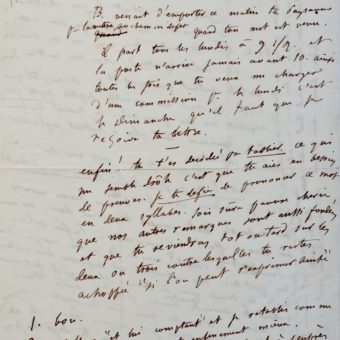 B. venait d'emporter ce matin tes paysages
quand ton mot est venu.
Il part tous les lundis à 9 h 1/2 et
la poste n'arrive jamais avant 10. ainsi
toutes les fois que tu veux me charger
d'une commission p. le lundi c'est
le Dimanche qu'il faut que je
reçoive ta lettre.
enfin! tu t'es décidé pr tablier, ce qui
me semble drôle c'est que tu aies eu besoin
de preuves. je te défie de prononcer ce mot
en deux syllabes. Sois sûre pauvre chérie
que nos autres remarques sont aussi fondées
et que tu reviendras tôt ou tard sur les
deux ou trois contre lesquelles tu restes
achoppée si l'on peut s'exprimer ainsi
1. bon.
et lui comptant et je rétablis comme